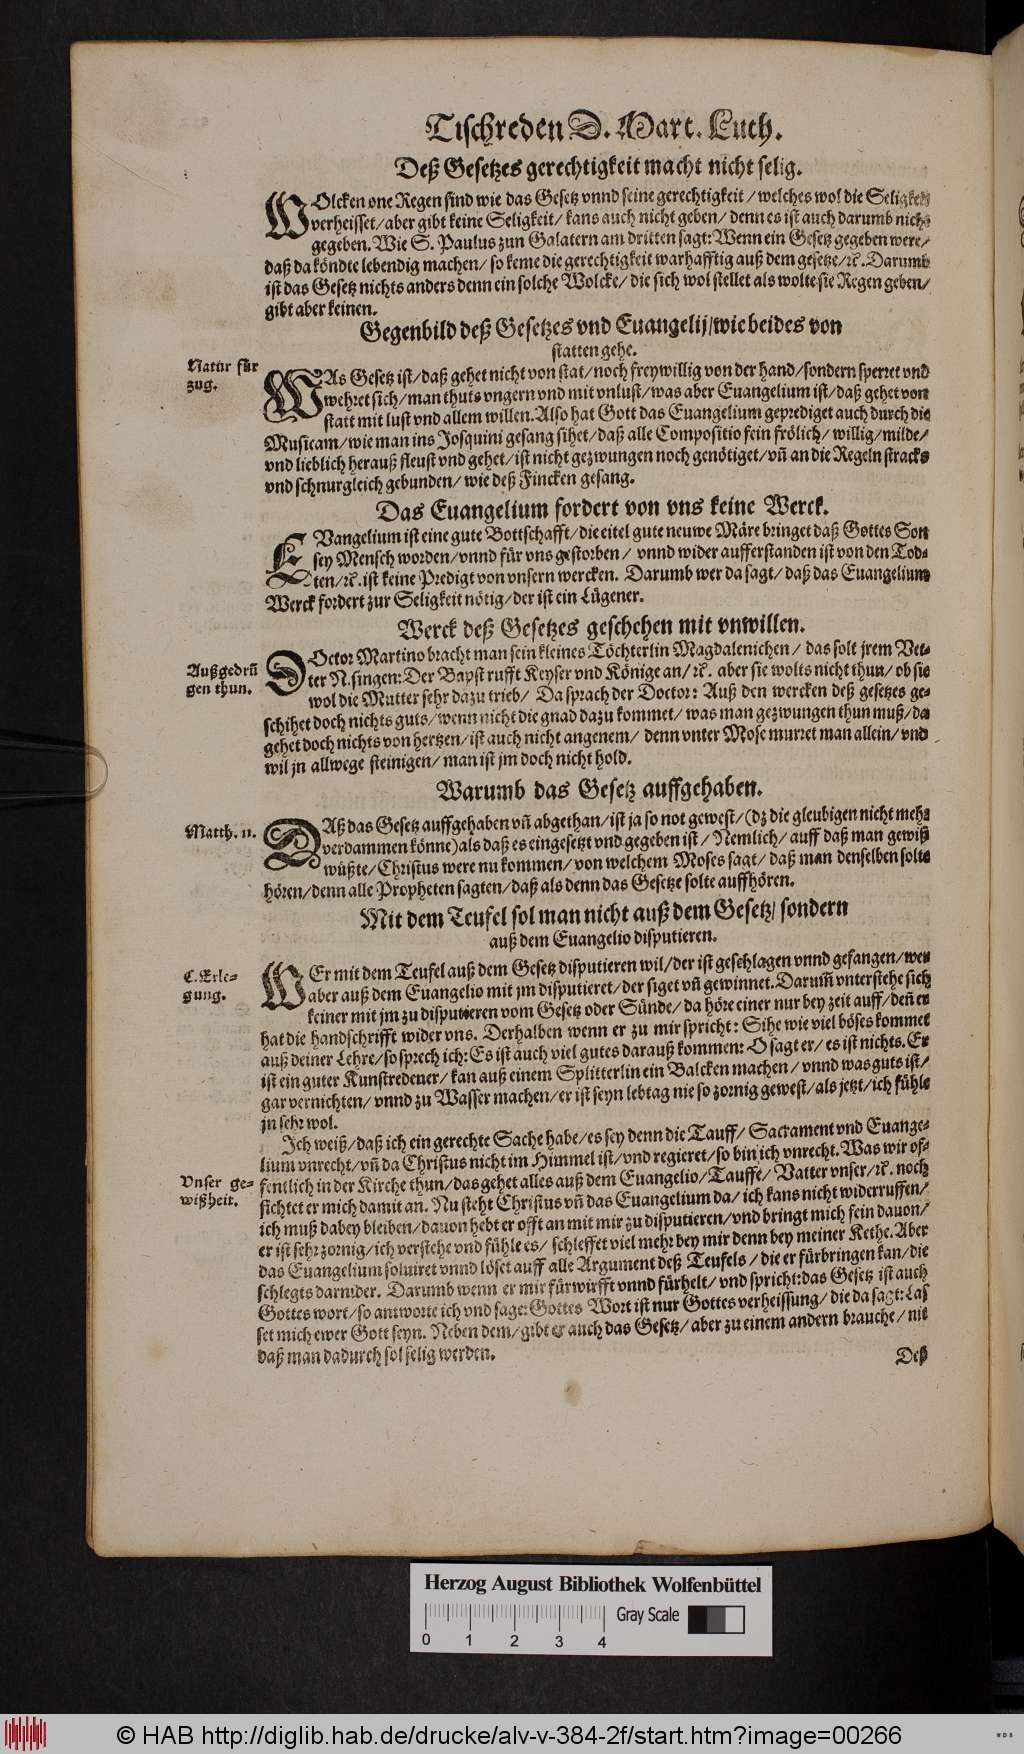 Tischreden D. Mart. Luth.
Deß Gesetzes gerechtigkeit macht nicht selig.
WOlcken one Regen sind wie das Gesetz vnnd seine gerechtigkeit / welches wol die Seligkeit
verheisset / aber gibt keine Seligkeit / kans auch nicht geben / denn es ist auch darumb nicht
gegeben. Wie S. Paulus zun Galatern am dritten sagt: Wenn ein Gesetz gegeben were /
daß da köndte lebendig machen / so keme die gerechtigkeit warhafftig auß dem gesetze / ꝛc. Darumb
ist das Gesetz nichts anders denn ein solche Wolcke / die sich wol stellet als wolte sie Regen geben /
gibt aber keinen.
Gegenbild deß Gesetzes vnd Euangelij / wie beides von
statten gehe.
Natur für
zug.
WAs Gesetz ist / daß gehet nicht von stat / noch freywillig von der hand / sondern sperret vnd
wehret sich / man thuts vngern vnd mit vnlust / was aber Euangelium ist / daß gehet von
statt mit lust vnd allem willen. Also hat Gott das Euangelium geprediget auch durch die
Musicam / wie man ins Josquini gesang sihet / daß alle Compositio fein frölich / willig / milde /
vnd lieblich herauß fleust vnd gehet / ist nicht gezwungen noch genötiget / vñ an die Regeln stracks
vnd schnurgleich gebunden / wie deß Fincken gesang.
Das Euangelium fordert von vns keine Werck.
EVangelium ist eine gute Bottschafft / die eitel gute neuwe Märe bringet daß Gottes Son
sey Mensch worden / vnnd für vns gestorben / vnnd wider aufferstanden ist von den Tod-
ten / ꝛc. ist keine Predigt von vnsern wercken. Darumb wer da sagt / daß das Euangelium
Werck fordert zur Seligkeit nötig / der ist ein Lügener.
Werck deß Gesetzes geschehen mit vnwillen.
Außgedrũ
gen thun.
DOctor Martino bracht man sein kleines Töchterlin Magdalenichen / das solt jrem Vet-
ter N. singen: Der Bapst rufft Keyser vnd Könige an / ꝛc. aber sie wolts nicht thun / ob sie
wol die Mutter sehr dazu trieb / Da sprach der Doctor: Auß den wercken deß gesetzes ge-
schihet doch nichts guts / wenn nicht die gnad dazu kommet / was man gezwungen thun muß / da
gehet doch nichts von hertzen / ist auch nicht angenem / denn vnter Mose murret man allein / vnd
wil jn allwege steinigen / man ist jm doch nicht hold.
Warumb das Gesetz auffgehaben.
Matth. 11.
DAß das Gesetz auffgehaben vñ abgethan / ist ja so not gewest / (dz die gleubigen nicht mehr
verdammen könne) als daß es eingesetzt vnd gegeben ist / Nemlich / auff daß man gewiß
wüßte / Christus were nu kommen / von welchem Moses sagt / daß man denselben solte
hören / denn alle Propheten sagten / daß als denn das Gesetze solte auffhören.
Mit dem Teufel sol man nicht auß dem Gesetz / sondern
auß dem Euangelio disputieren.
C. Erle-
gung.
WEr mit dem Teufel auß dem Gesetz disputieren wil / der ist geschlagen vnnd gefangen / wer
aber auß dem Euangelio mit jm disputieret / der siget vñ gewinnet. Darum̃ vnterstehe sich
keiner mit jm zu disputieren vom Gesetz oder Sünde / da höre einer nur bey zeit auff / deñ er
hat die handschrifft wider vns. Derhalben wenn er zu mir spricht: Sihe wie viel böses kommet
auß deiner Lehre / so sprech ich: Es ist auch viel gutes darauß kommen: O sagt er / es ist nichts. Er
ist ein guter Kunstredener / kan auß einem Splitterlin ein Balcken machen / vnnd was guts ist /
gar vernichten / vnnd zu Wasser machen / er ist seyn lebtag nie so zornig gewest / als jetzt / ich fühle
jn sehr wol.
Ich weiß / daß ich ein gerechte Sache habe / es sey denn die Tauff / Sacrament vnd Euange-
lium vnrecht / vñ da Christus nicht im Himmel ist / vnd regieret / so bin ich vnrecht. Was wir of-
Vnser ge-
wißheit.
fentlich in der Kirche thun / das gehet alles auß dem Euangelio / Tauffe / Vatter vnser / ꝛc. noch
fichtet er mich damit an. Nu steht Christus vñ das Euangelium da / ich kans nicht widerruffen /
ich muß dabey bleiben / dauon hebt er offt an mit mir zu disputieren / vnd bringt mich fein dauon /
er ist sehr zornig / ich verstehe vnd fühle es / schleffet viel mehr bey mir denn bey meiner Kethe. Aber
das Euangelium soluiret vnnd löset auff alle Argument deß Teufels / die er fürbringen kan / die
schlegts darnider. Darumb wenn er mir fürwirfft vnnd fürhelt / vnd spricht: das Gesetz ist auch
Gottes wort / so antworte ich vnd sage: Gottes Wort ist nur Gottes verheissung / die da sagt: Las
set mich ewer Gott seyn. Neben dem / gibt er auch das Gesetz / aber zu einem andern brauche / nit
daß man dadurch sol selig werden.
Deß
Herzog August Bibliothek Wolfenbüttel
Gray Scale
0 1 2 3 4
© HAB http://diglib.hab.de/drucke/alv-v-384-2f/start.htm?image=00266